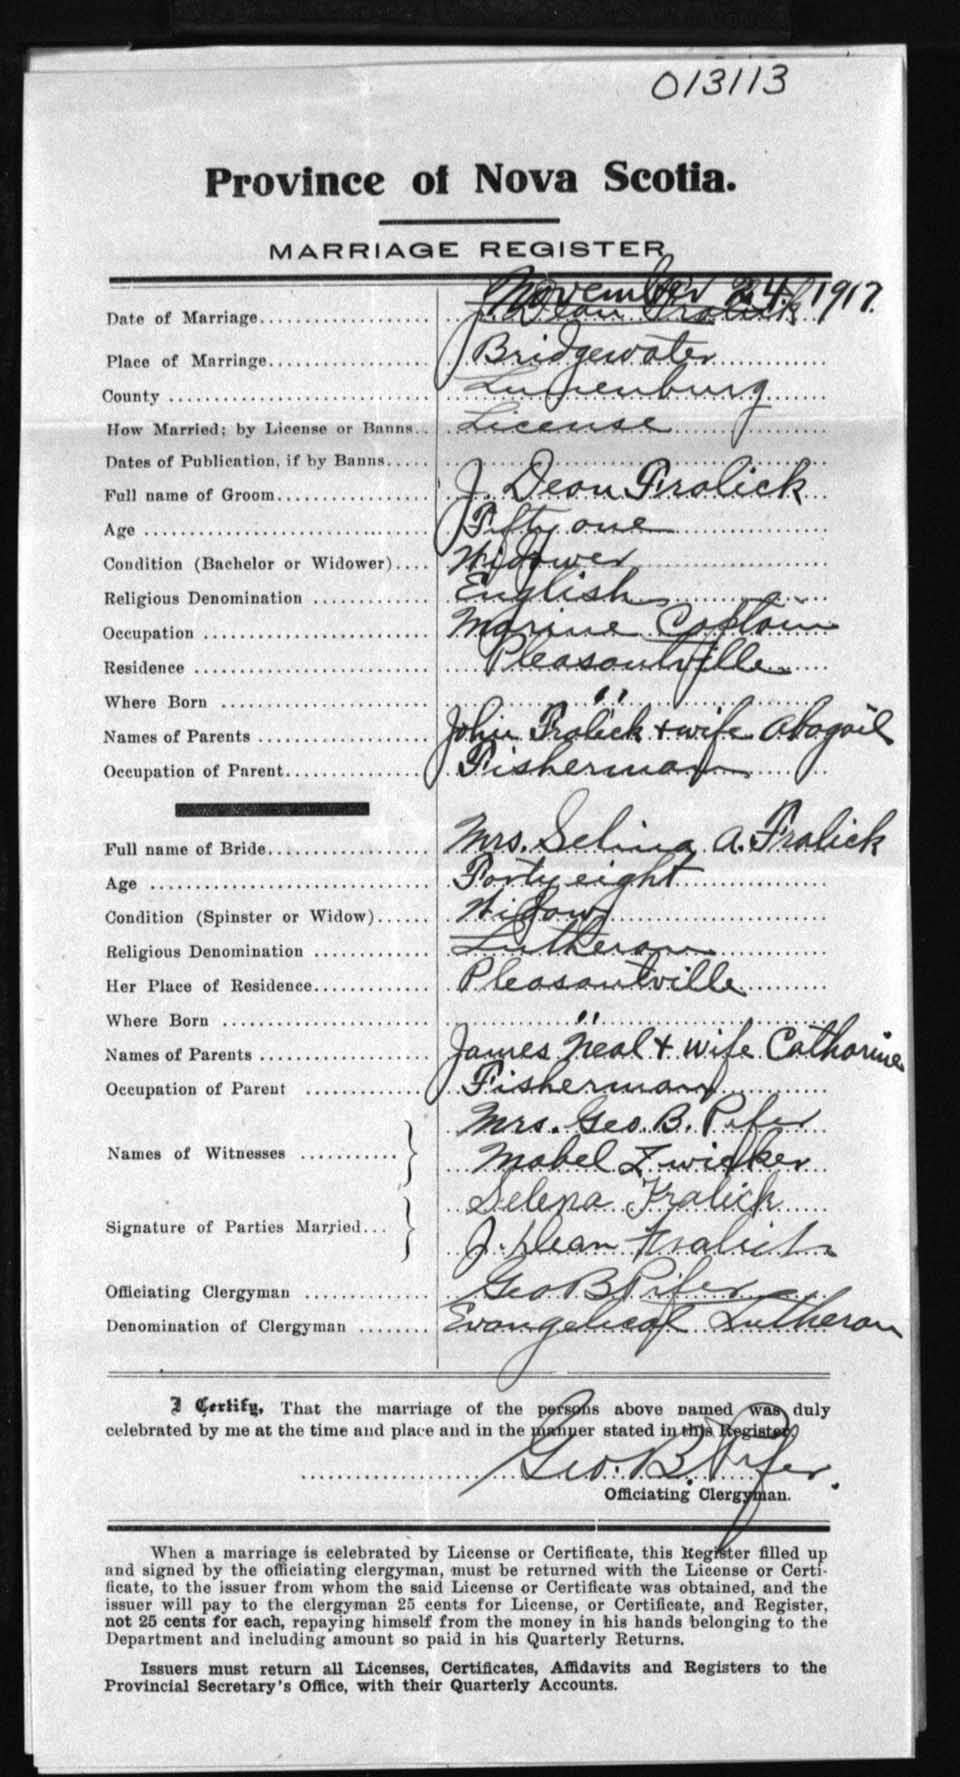 013113
Province of Nova Scotia.
MARRIAGE REGISTER
Date of Marriage November 24, 1917.
J. Dean Frolick
Place of Marriage Bridgewater
County Lunenburg
How Married; by License or Banns License
Dates of Publication, if by Banns
Full name of Groom J. Dean Frolick
Age Fifty one
Condition (Bachelor or Widower) Widower
Religious Denomination English
Occupation Marine Captain
Residence Pleasantville
Where Born "
Names of Parents John Frolick + wife Abagail
Occupation of Parent Fisherman
Full name of Bride Mrs. Selina A. Frolick
Age Forty eight
Condition (Spinster or Widow) Widow
Religious Denomination Lutheran
Her Place of Residence Pleasantville
Where Born "
Names of Parents James Neal + wife Catharine
Occupation of Parent Fisherman
Names of Witnesses Mrs. Geo. B. Pifer
Mabel Zwicker
Signature of Parties Married Selena Fralick
J. Dean Fralick
Officiating Clergyman Geo B Pifer
Denomination of Clergyman Evangelical Lutheran
I Certify, That the marriage of the persons above named was duly
celebrated by me at the time and place and in the manner stated in this Register.
Geo. B. Pifer.
Officiating Clergyman.
When a marriage is celebrated by License or Certificate, this Register filled up
and signed by the officiating clergyman, must be returned with the License or Certi-
ficate, to the issuer from whom the said License or Certificate was obtained, and the
issuer will pay to the clergyman 25 cents for License, or Certificate, and Register,
not 25 cents for each, repaying himself from the money in his hands belonging to the
Department and including amount so paid in his Quarterly Returns.
Issuers must return all Licenses, Certificates, Affidavits and Registers to the
Provincial Secretary's Office, with their Quarterly Accounts.